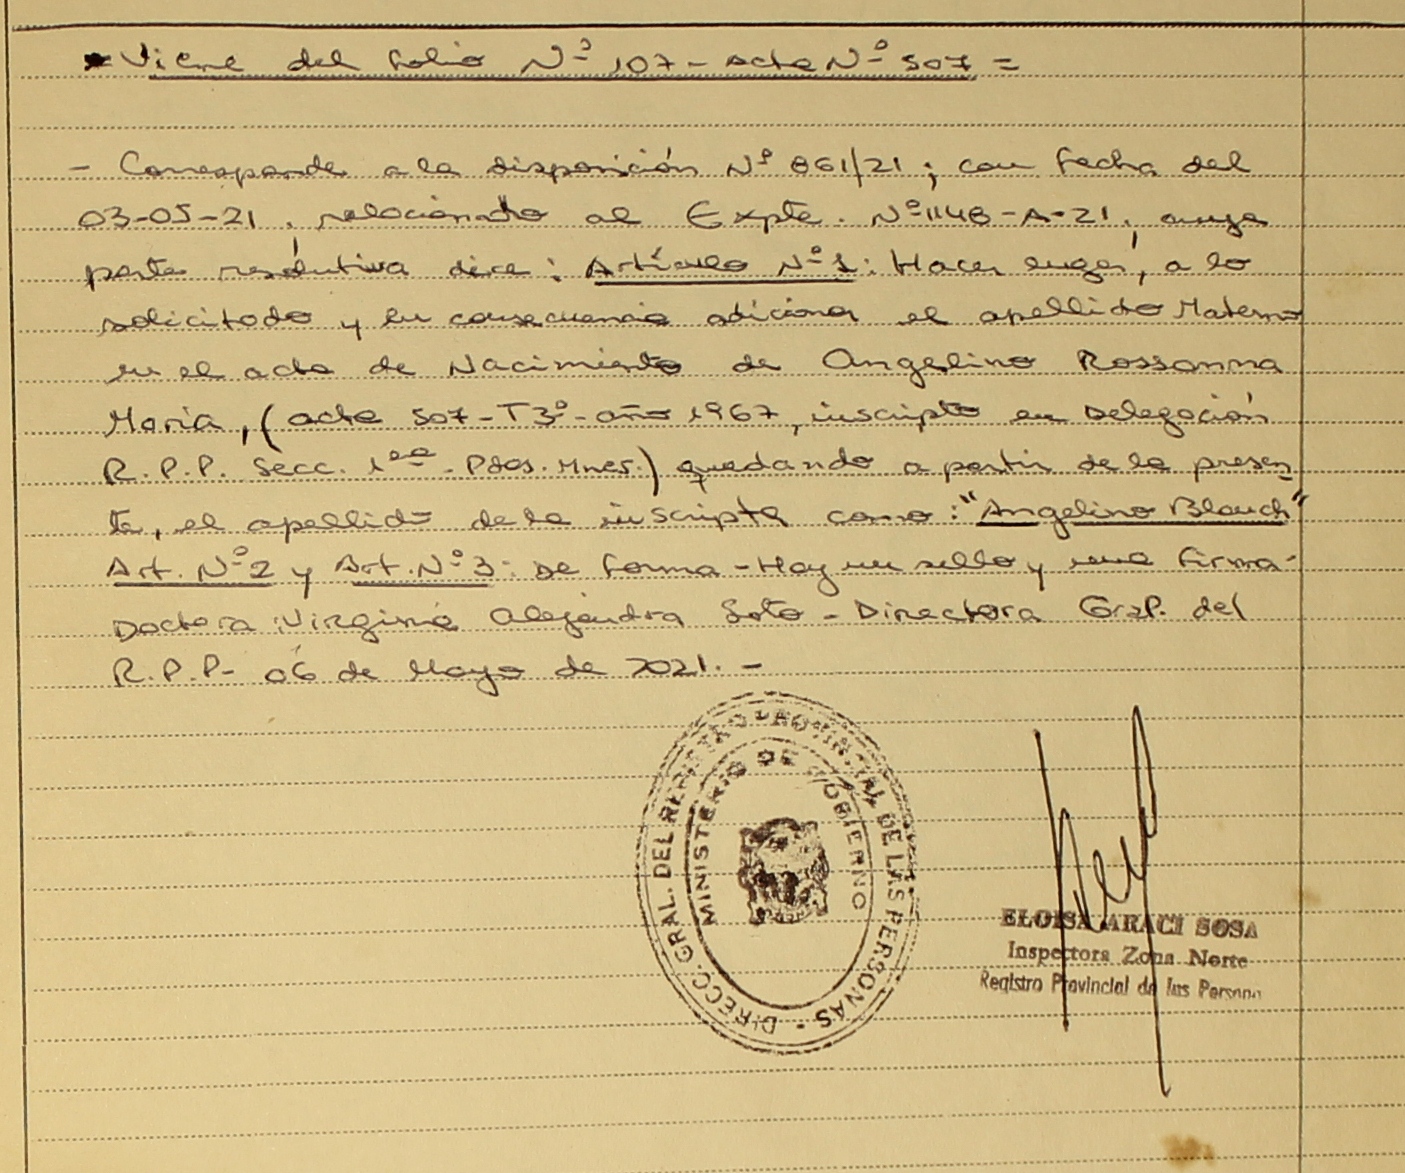 Viene del folio Nº 107 - Acta Nº 507 =
- Corresponde a la disposición Nº 861/21 ; con fecha del
03-05-21, relacionado al Expte. Nº 1148-A-21, cuya
parte resolutiva dice : Artículo Nº 1 : Hacer lugar, a lo
solicitado y en consecuencia adicionar el apellido Materno
en el acta de Nacimiento de Angelino Rossanna
María, (acta 507-T3º-año 1967, inscripta en Delegación
R.P.P. Secc. 1era - Pdas. Mnes.) quedando a partir de la presen
te, el apellido de la inscripta como : "Angelino Blauch"
Art. Nº 2 y Art. Nº 3 : De forma - Hay un sello y una firma -
Doctora : Virginia Alejandra Soto - Directora Gral. del
R.P.P- 06 de Mayo de 2021. -
DIRECC. GRAL. DEL REGISTRO PROVINCIAL DE LAS PERSONAS -
MINISTERIO DE GOBIERNO
ELOISA ARACI SOSA
Inspectora Zona Norte
Registro Provincial de las Persona